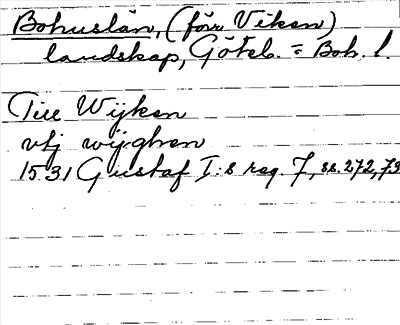 Bohuslän, (förr Viken)
landskap, Götebs. = Boh. l.
Till Wijken
vtj wijghen
1531 Gustaf I:s reg. 7, ss. 272, 73